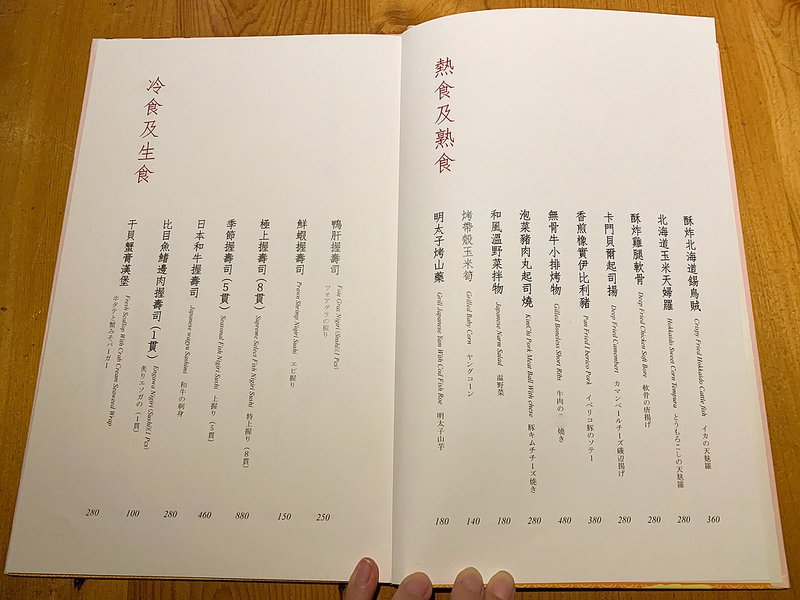 熱食及熟食
酥炸北海道錫烏賊 Crispy Fried Hokkaido Cuttle fish イカの天麩羅 360
北海道玉米天婦羅 Hokkaido Sweet Corn Tempura とうもろこしの天麩羅 280
酥炸雞腿軟骨 Deep Fried Chicken Soft Bone 軟骨の唐揚げ 280
卡門貝爾起司揚 Deep Fried Camembert カマンベールチーズ磯辺揚げ 280
香煎橡實伊比利豬 Pan Fried Iberico Pork イベリコ豚のソテー 380
無骨牛小排烤物 Grilled Boneless Short Ribs 牛肉の 焼き 480
泡菜豬肉丸起司燒 KimChi Pork Meat Ball With cheese 豚キムチチーズ焼き 280
和風溫野菜拌物 Japanese Warm Salad 温野菜 180
烤帶殼玉米筍 Grilled Baby Corn ヤングコーン 140
明太子烤山藥 Grill Japanese Yam With Cod Fish Roe 明太子山芋 180
冷食及生食
鴨肝握壽司 Foie Gras Nigiri (Sushi)(1 Pcs) フォアグラの握り 250
鮮蝦握壽司 Prawn Shrimp Nigiri Sushi エビ握り 150
極上握壽司（8貫） Supreme Select Fish Nigiri Sushi 特上握り（8貫） 880
季節握壽司（5貫） Seasonal Fish Nigiri Sushi 上握り（5貫） 460
日本和牛握壽司 Japanese wagyu Sashimi 和牛の刺身 280
比目魚鰭邊肉握壽司（1貫） Engawa Nigiri (Sushi)(1 Pcs) 炙りエンガの（1貫） 100
干貝蟹膏漢堡 Fresh Scallop With Crab Cream Seaweed Wrap ホタテと蟹みそバーガー 280